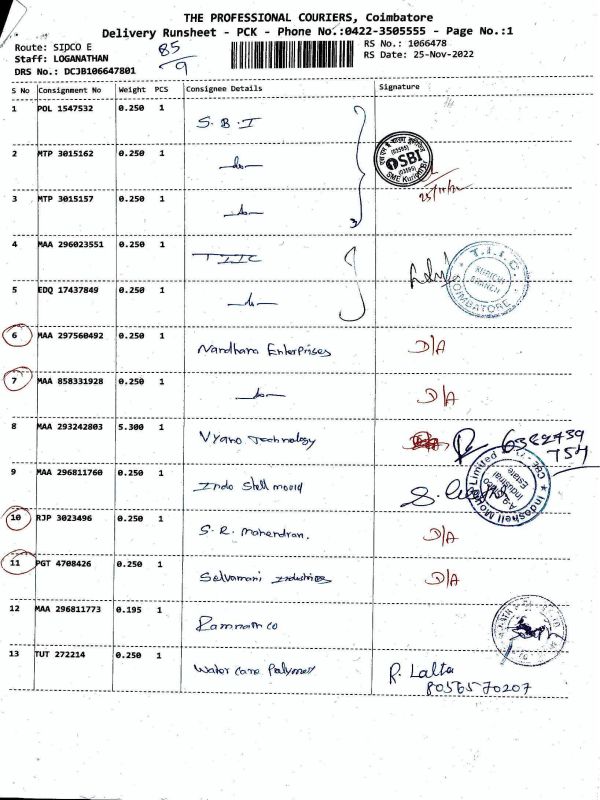 THE PROFESSIONAL COURIERS, Coimbatore
Delivery Runsheet - PCK - Phone No.:0422-3505555 - Page No.:1
Route: SIDCO E
85/9
RS No.: 1066478
Staff: LOGANATHAN
RS Date: 25-Nov-2022
DRS No.: DCJB106647801
S No Consignment No Weight PCS Consignee Details Signature
1 POL 1547532 0.250 1 S.B.I
2 MTP 3015162 0.250 1 SBI
25/11/22
3 MTP 3015157 0.250 1
3
4 MAA 296023551 0.250 1 TIIC T.I.I.C. KURICHI BRANCH COIMBATORE
5 EDQ 17437849 0.250 1
6 MAA 297560492 0.250 1 Nandhana Enterprises D/A
7 MAA 858331928 0.250 1 D/A
8 MAA 293242803 5.300 1 Vyano Technology 6382439
754
9 MAA 296811760 0.250 1 Indo Shell mould
10 RJP 3023496 0.250 1 S.R. Mahendran. D/A
11 PGT 4708426 0.250 1 Selvamani Industries D/A
12 MAA 296811773 0.195 1 Ramnath co
13 TUT 272214 0.250 1 Water care Polymer R. Lalta
8056570207